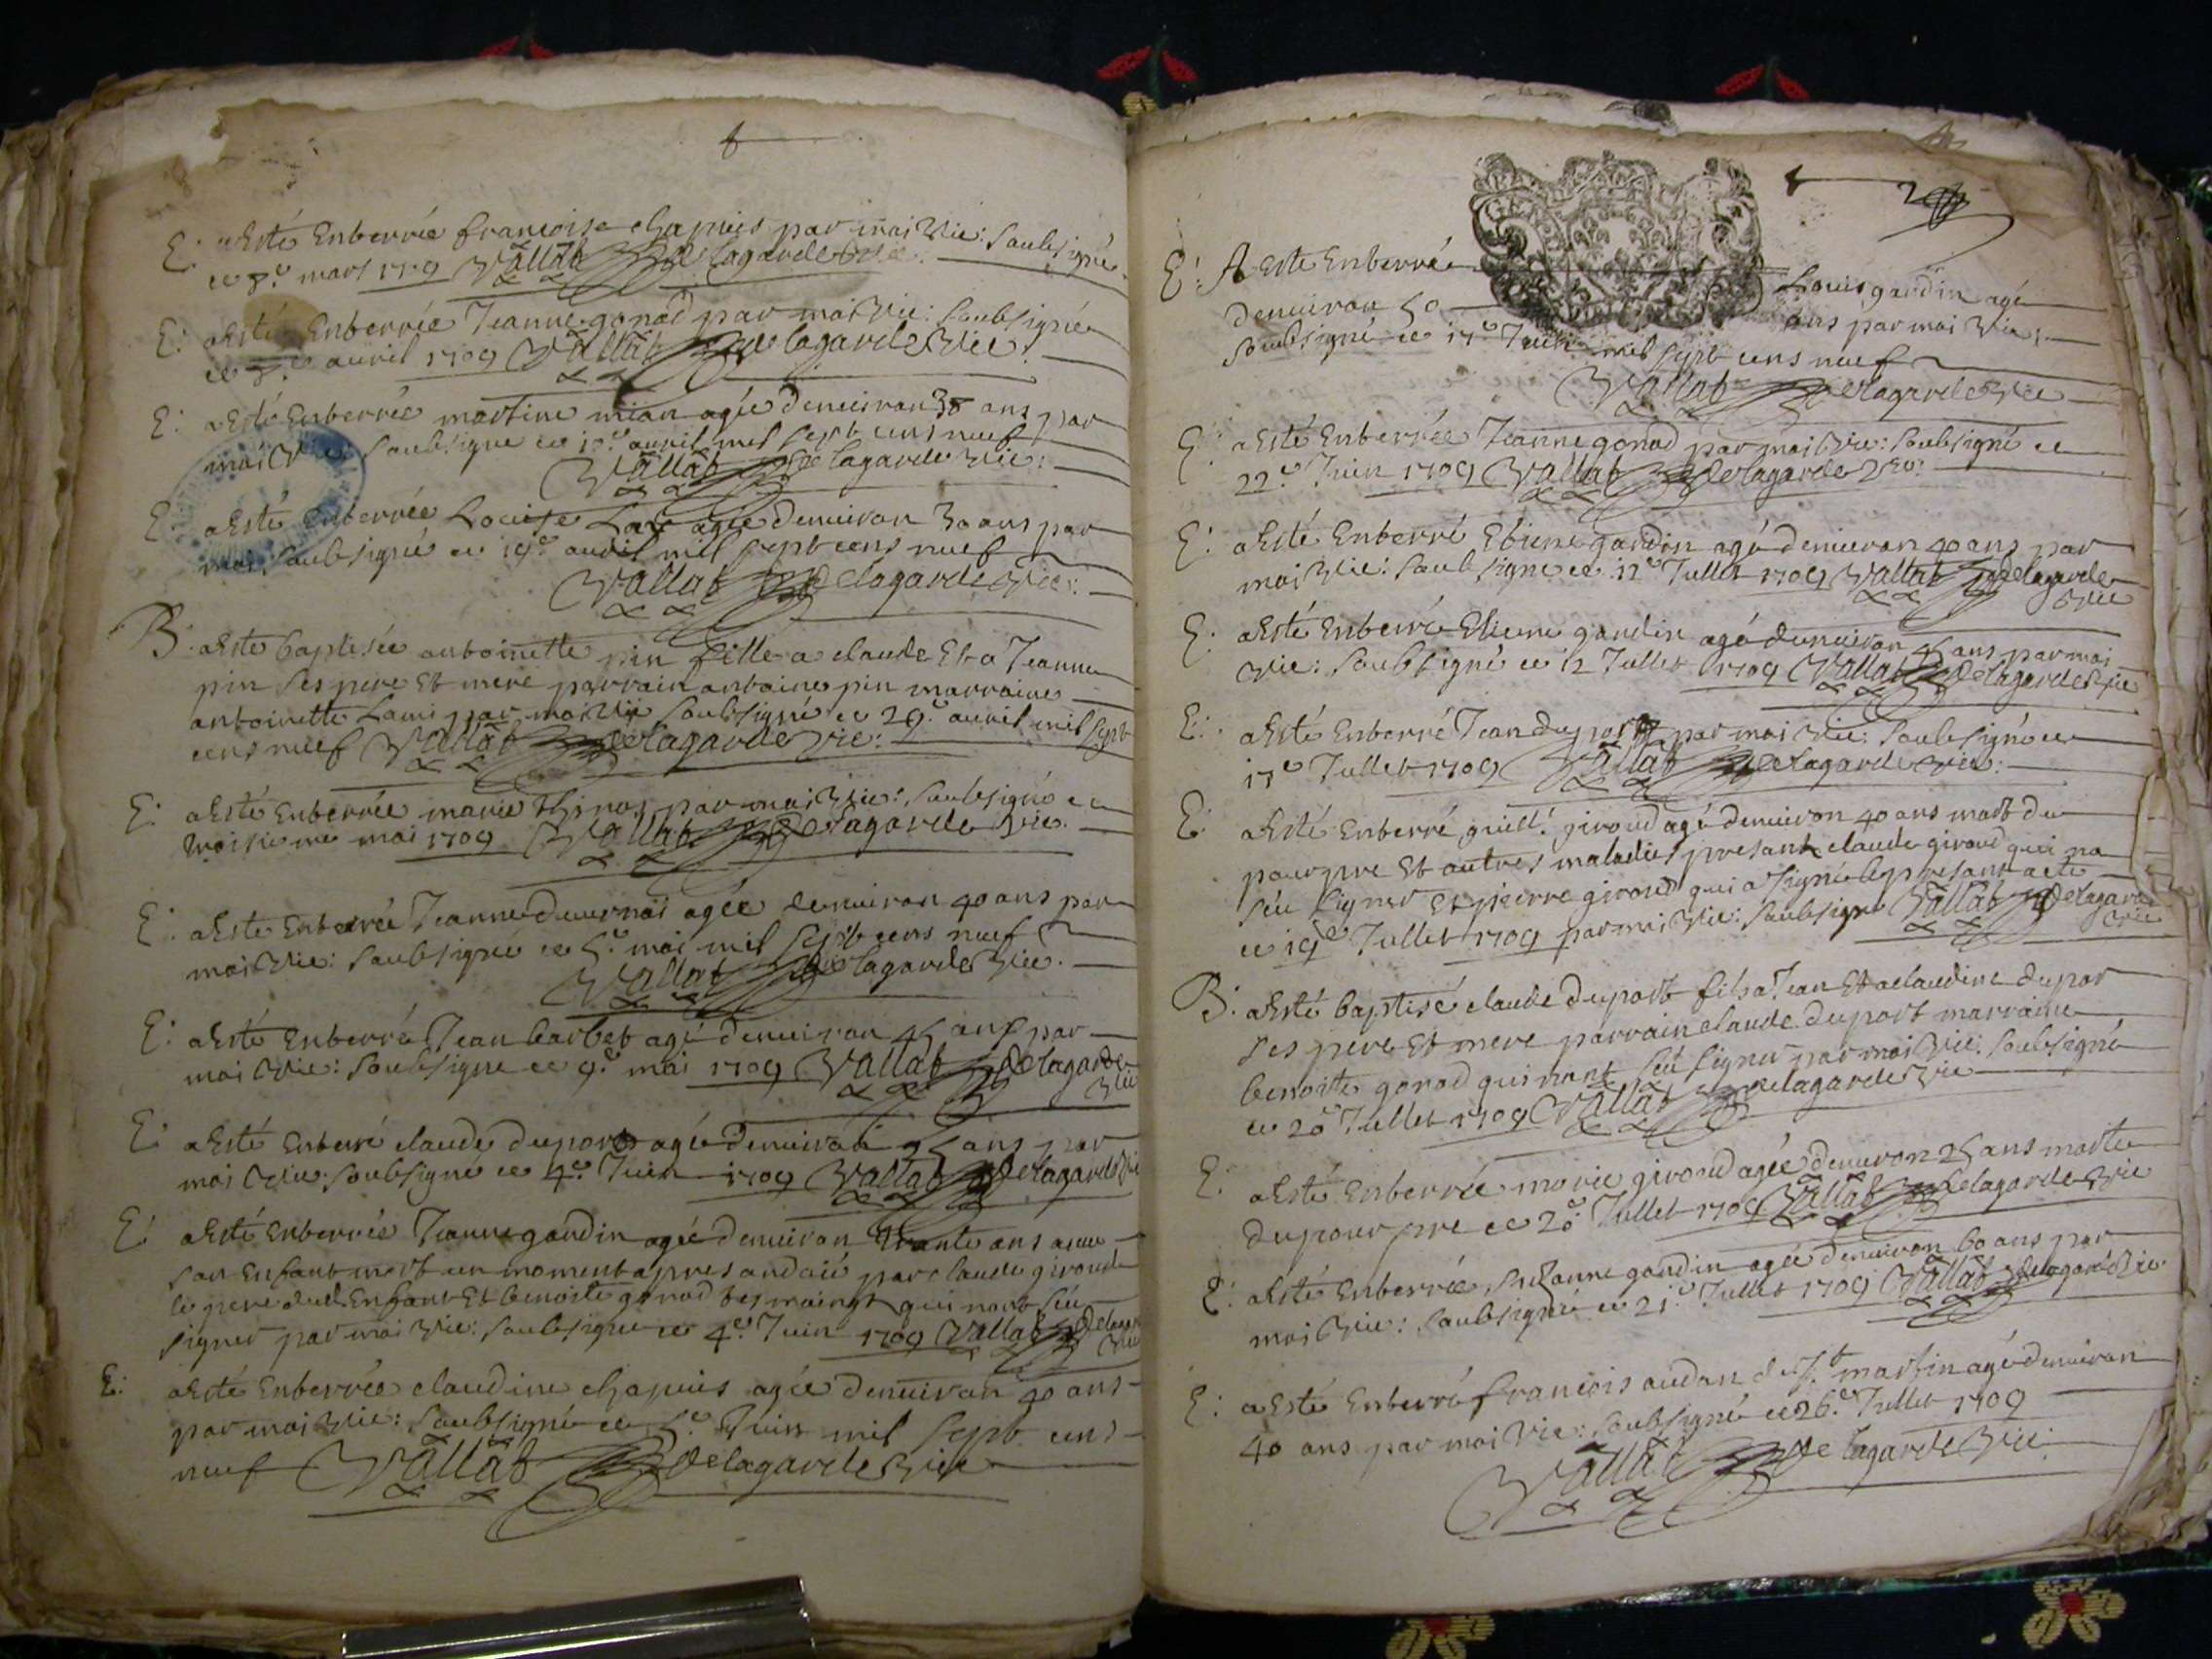 E: a Esté Enterrée francoise chapuis par moi Vic: Soubsigné
ce 7.e mars 1709 Vallat De lagarde Vic:
E: a Esté Enterrée Jeanne gonod par moi Vic: Soubsigné
ce 7.e auril 1709 Vallat De lagarde Vic:
E: a Esté Enterrée martine mian agée denuiron 38 ans par
moi Vic: Soubsigne ce auril mil sept cens neuf
Vallat De lagarde Vic:
E: a Esté Enterrée Louise agée denuiron 30 ans par
moi Soubsigné ce 19.e auril mil sept cens neuf
Vallat Delagarde Vic:
B: a Este baptisée antoinette pin fille a claude Et a Jeanne
pin ses pere Et mere parrain antoine pin marraine
antoinette Lami par moi Vic Soubsigné ce 29.e auril mil sept
cens neuf Vallat Delagarde Vic:
E: a Esté Enterrée marie par moi Vic: Soubsigné ce
troisieme mai 1709 Vallat Delagarde Vic:
E: a Esté Enterrée Jeanne duuernai agée denuiron 40 ans par
moi Vic: Soubsigné ce 5.e mai mil sept cens neuf
Vallat Delagarde Vic:
E: a Esté Enterré Jean barbet agé denuiron 45 ans par
moi Vic: Soubsigne ce 9.e mai 1709 Vallat Delagarde
Vic
E: a Esté Enterré claude duport agé denuiron ans par
moi Vic: Soubsigné ce 4.e Juin 1709 Vallat Delagarde Vic
E: a Esté Enterrée Jeanne gandin agée denuiron trante ans auec
son Enfant mort un moment apres andaié par claude giroud
le pere dud. Enfant Et benoite gonod tesmoings qui nont séu
signer par moi Vic: Soubsigne ce 4.e Juin 1709 Vallat Delagar
Vic
E: a Esté Enterrée claudine chapuis agée denuiron 40 ans
par moi Vic: Soubsigné ce 5.e Juin mil sept cens
neuf Vallat Delagarde Vic
E: A Esté Enterré Louis gardin agé
denuiron 50 ans par moi Vic:
Soubsigné ce 17.e Juin mil sept cens neuf
Vallat Delagarde Vic
E: a Esté Enterrée Jeanne gonod par moi Vic: Soubsigné ce
22.e Juin 1709 Vallat Delagarde Vic:
E: a Esté Enterré Etiene gandin agé denuiron 40 ans par
moi Vic: Soubsigne ce 12.e Jullet 1709 Vallat Delagarde
Vic
E: a Esté Enterré Etienne gandin agé denuiron 45 ans par moi
Vic: Soubsigné ce 12 Jullet 1709 Vallat Delagarde Vic
E: a Esté Enterré Jean duport par moi Vic: Soubsigné ce
17.e Jullet 1709 Vallat Delagarde Vic:
E: a Esté Enterré guill. giroud agé denuiron 40 ans mort du
pourpre Et autres maladies presant claude giroud qui na
séu signer Et pierre giroud qui a signé le presant acte
ce 19.e Jullet 1709 par moi Vic: Soubsigné Vallat Delagarde
Vic
B: a Esté baptisé claude duport fils a Jean Et a claudine dupor
ses pere Et mere parrain claude duport marraine
benoite gonod qui nont séu signer par moi Vic: Soubsigné
ce 20.e Jullet 1709 Vallat Delagarde Vic
E: a Esté Enterrée marie giroud agée denuiron 25 ans morte
du pourpre ce 20.e Jullet 1709 Vallat Delagarde Vic
E: a Esté Enterrée Suzanne gandin agée denuiron 60 ans par
moi Vic: Soubsigné ce 21.e Jullet 1709 Vallat Delagarde Vic
E: a Esté Enterré francois audan de S.t martin agé denuiron
40 ans par moi Vic: Soubsigné ce 26.e Jullet 1709
Vallat De lagarde Vic: